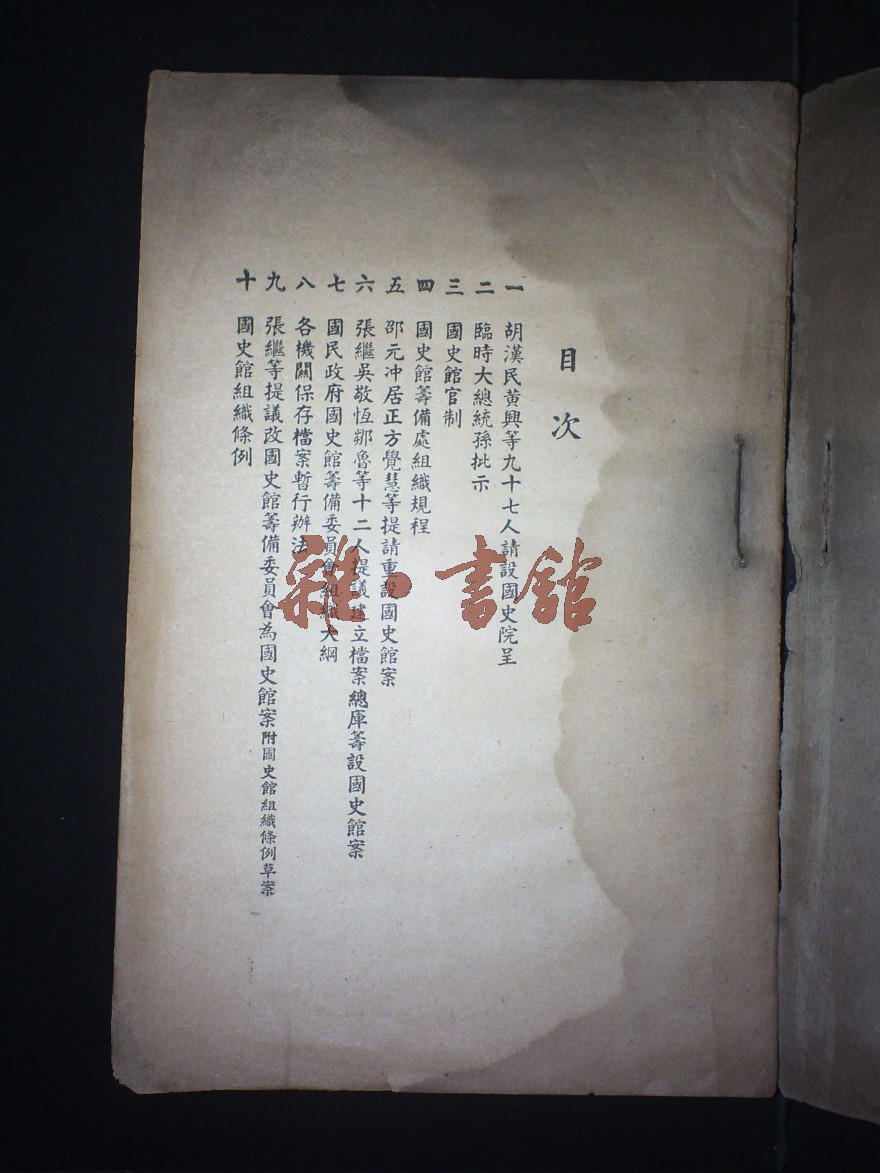 目次
一 胡漢民黃興等九十七人請設國史院呈
二 臨時大總統孫批示
三 國史館官制
四 國史館籌備處組織規程
五 邵元冲居正方覺慧等提請重設國史館案
六 張繼吳敬恆鄒魯等十二人提議建立檔案總庫籌設國史館案
七 國民政府國史館籌備委員會組織大綱
八 各機關保存檔案暫行辦法
九 張繼等提議改國史館籌備委員會為國史館案附國史館組織條例草案
十 國史館組織條例
雜·書館